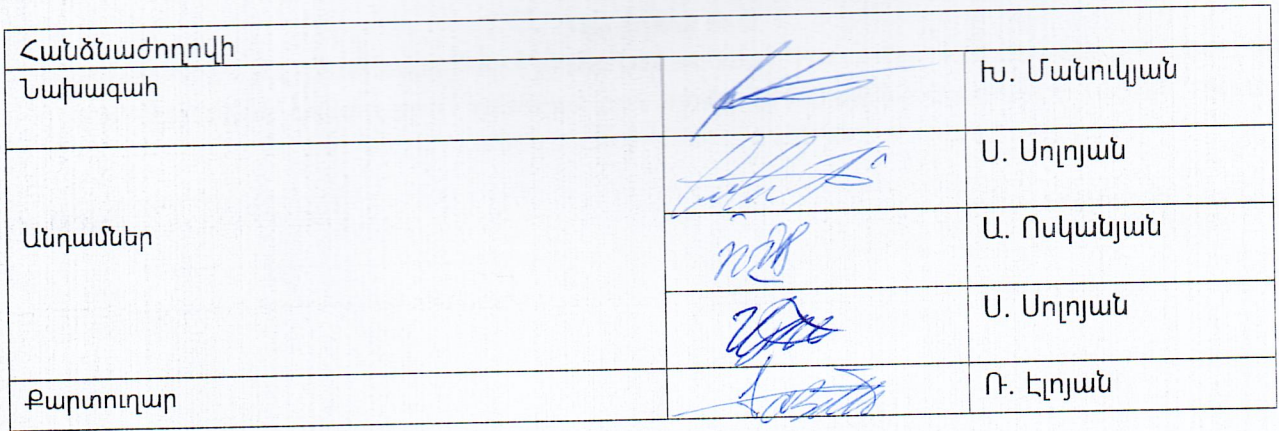 Հանձնաժողովի
Նախագահ
Խ. Մանուկյան
Անդամներ
Ս. Սոլոյան
Ա. Ոսկանյան
Ս. Սոլոյան
Քարտուղար
Ռ. Էլոյան